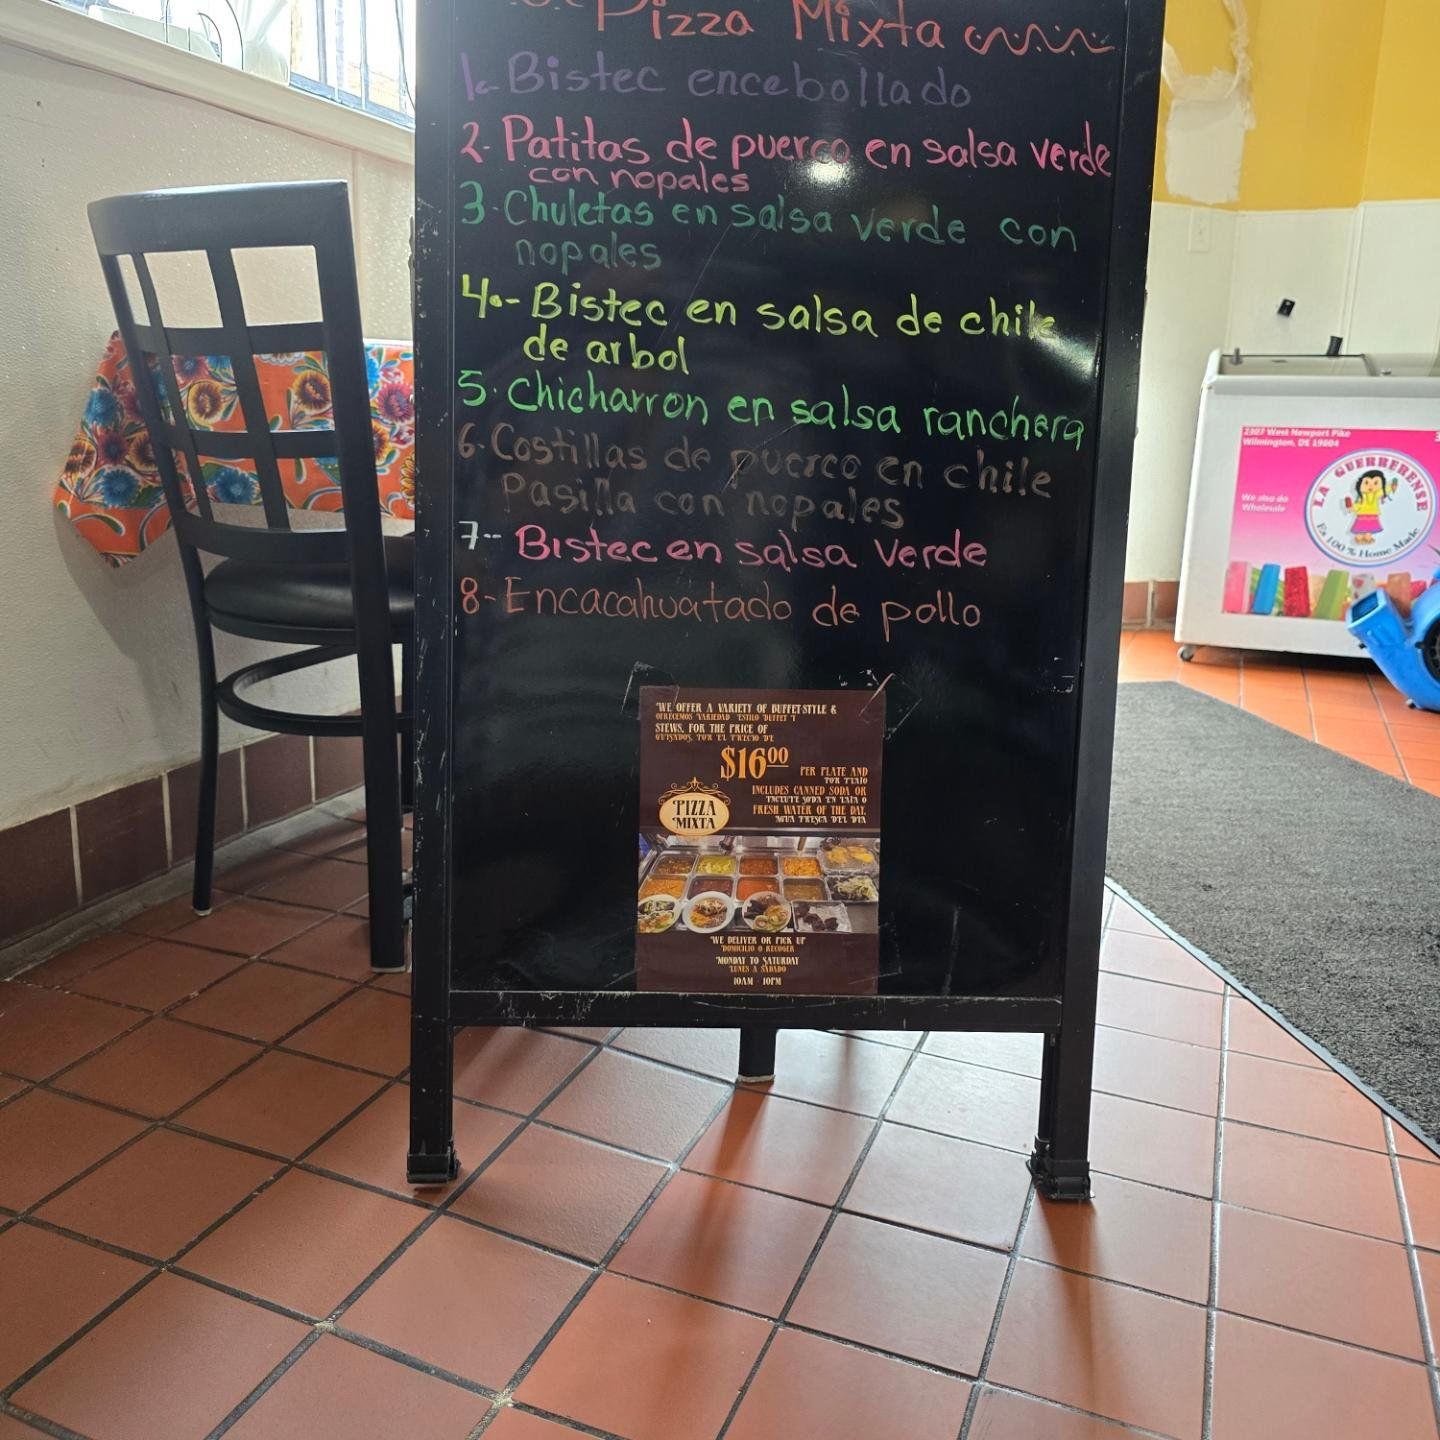 Pizza Mixta
1.- Bistec encebollado
2- Patitas de puerco en salsa verde
con nopales
3- Chuletas en salsa verde con
nopales
4.- Bistec en salsa de chile
de arbol
5- Chicharron en salsa ranchera
6- Costillas de puerco en chile
Pasilla con nopales
7-- Bistec en salsa verde
8- Encacahuatado de pollo
WE OFFER A VARIETY OF BUFFET-STYLE &
OFRECEMOS VARIEDAD ESTILO BUFFET Y
STEWS, FOR THE PRICE OF
GUISADOS, POR EL PRECIO DE
$16.00
PER PLATE AND
POR PLATO
INCLUDES CANNED SODA OR
INCLUYE SODA EN LATA O
FRESH WATER OF THE DAY.
AGUA FRESCA DEL DIA
PIZZA
MIXTA
WE DELIVER OR PICK UP
DOMICILIO O RECOGER
MONDAY TO SATURDAY
LUNES A SABADO
10AM - 10PM
2307 West Newport Pike
Wilmington, DE 19804
We also do
Wholesale
LA GUERRERENSE
Es 100% Home Made